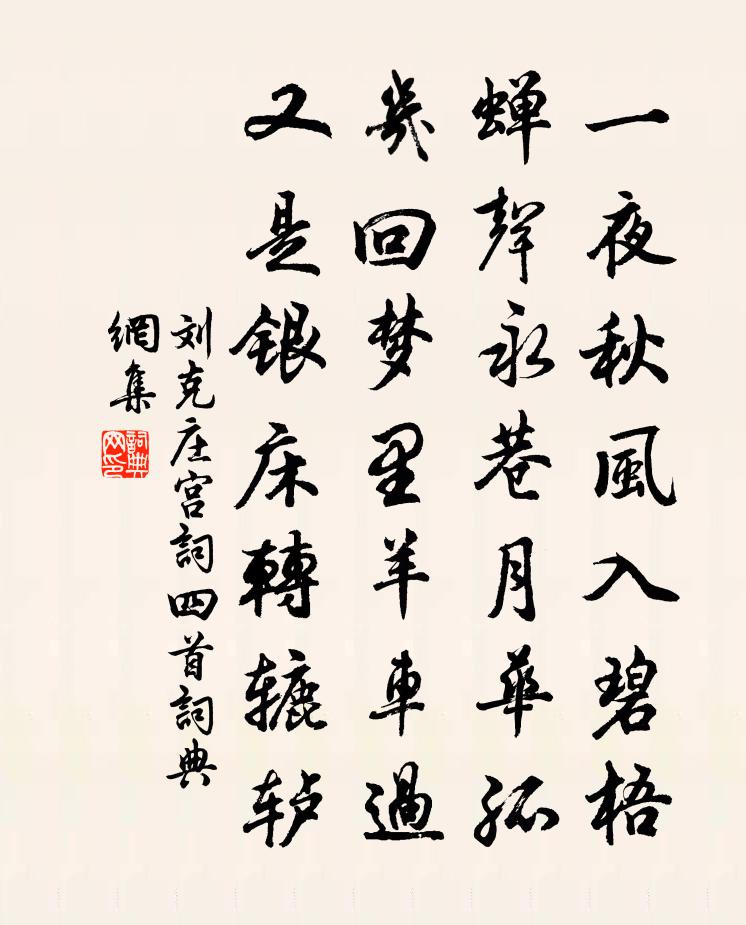 一夜秋風入碧梧
蝉聲永巷月華孤
幾回梦里羊車過
又是銀床轉辘轳
刘克庄宫詞四首詞典
網集
詞典網印